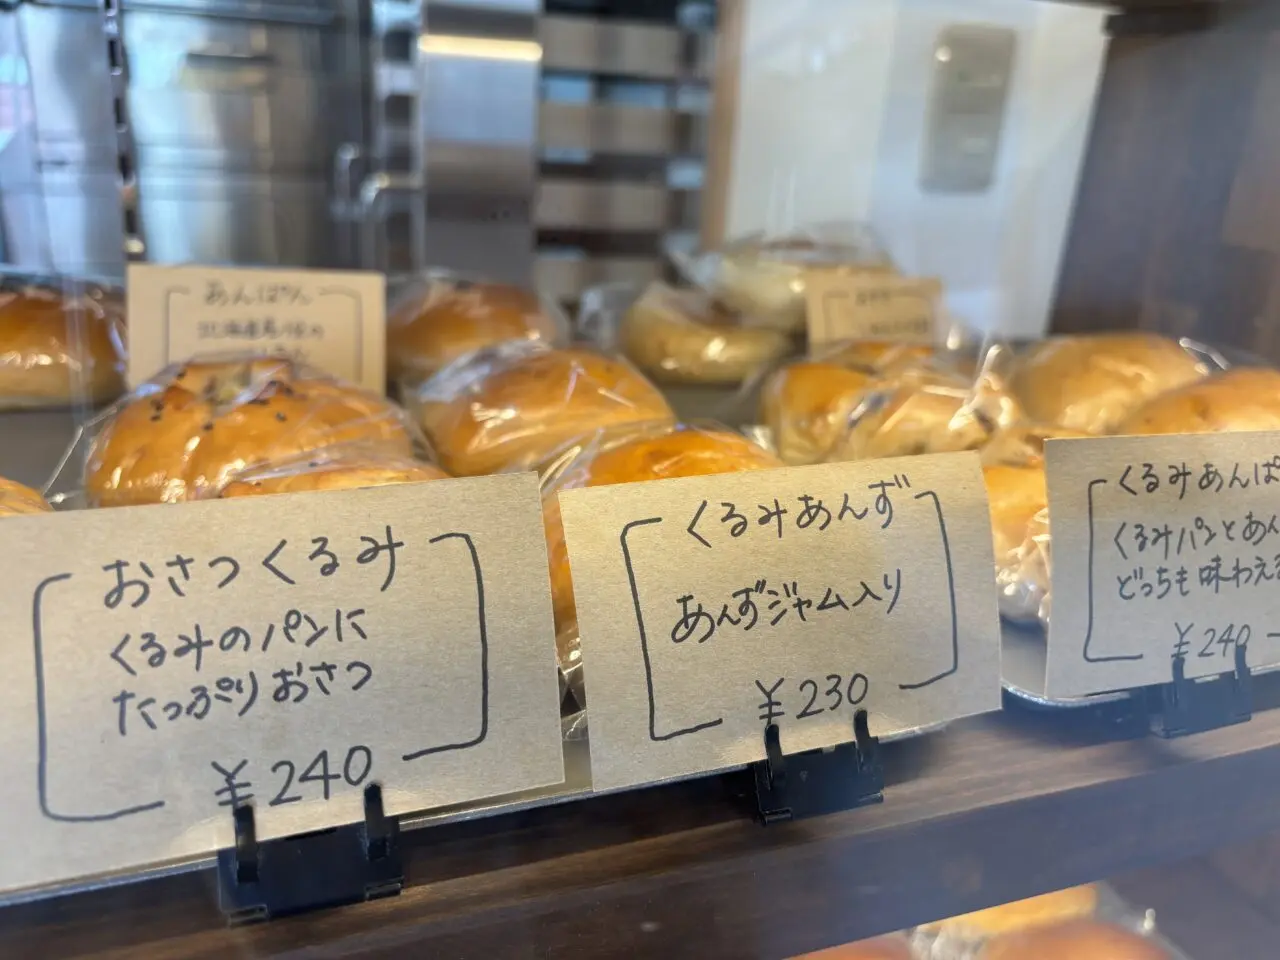 あんぱん
北海道産小豆の
おさつくるみ
くるみのパンに
たっぷりおさつ
¥240
くるみあんず
あんずジャム入り
¥230
くるみあんぱ
くるみパンとあん
どっちも味わえる
¥240